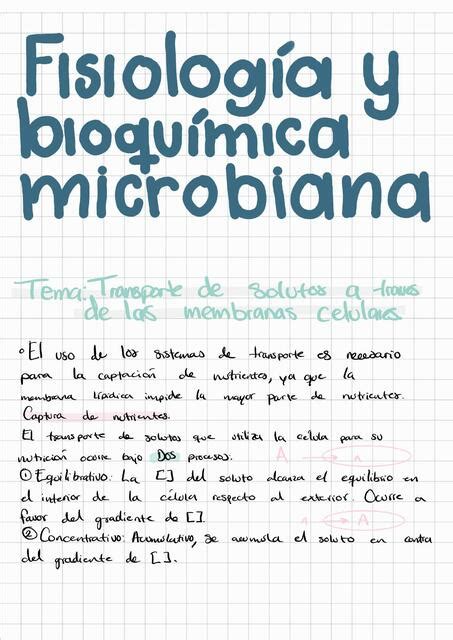 Fisiología y
bioquímica
microbiana
Tema: Transporte de solutos a traves
de las membranas celulares
° El uso de los sistemas de transporte es necesario
para la captación de nutrientes, ya que la
membrana lipídica impide la mayor parte de nutrientes.
Captura de nutrientes.
El transporte de solutos que utiliza la celula para su
nutrición ocurre bajo Dos procesos: A → n
① Equilibrativo: La [] del soluto alcanza el equilibrio en
el interior de la célula respecto al exterior. Ocurre a
favor del gradiente de []. n → A
② Concentrativo: Acumulativo, se acumula el soluto en contra
del gradiente de [].